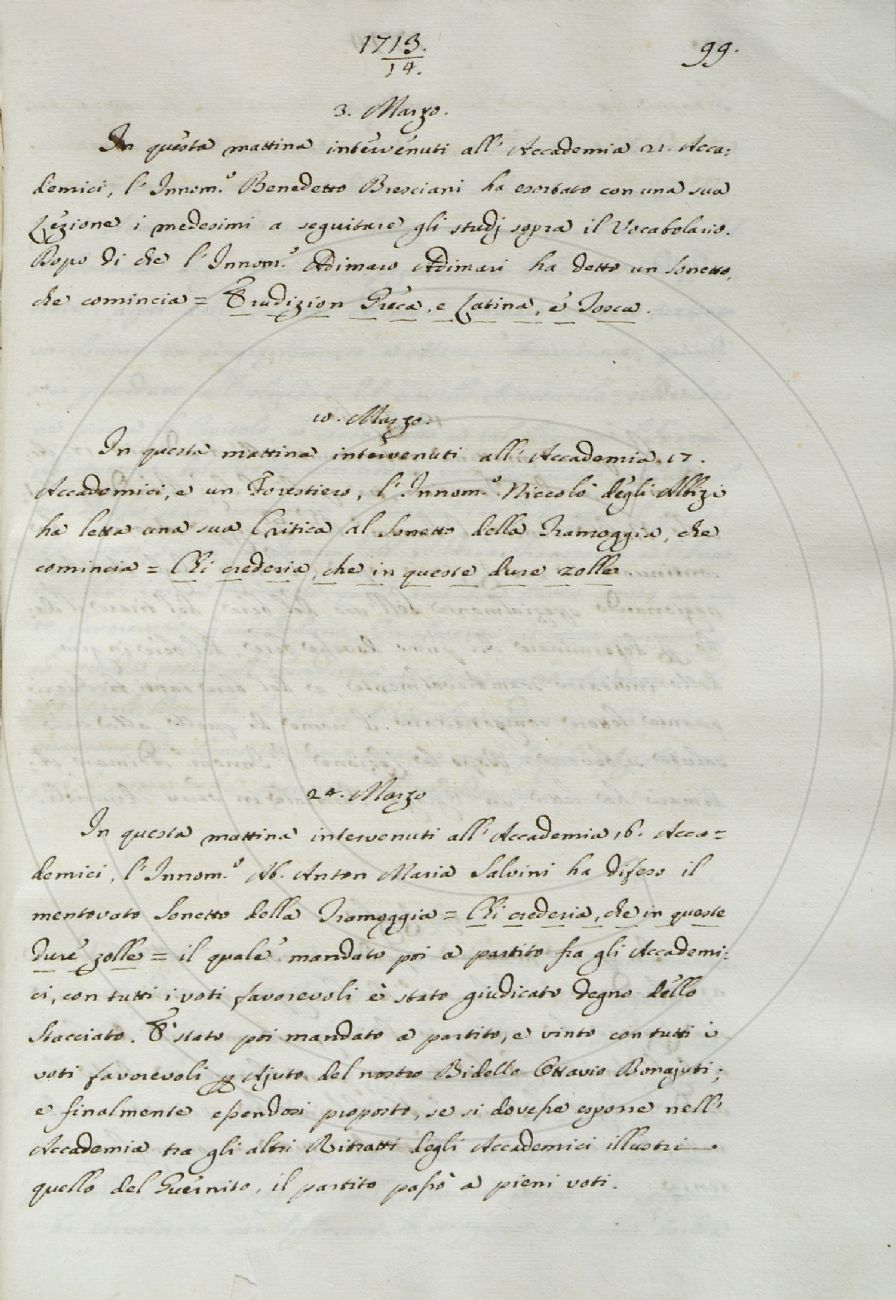 1713.
14.
99.
3. Marzo.
In questa mattina intervenuti all'Accademia 21. Acca=
demici, l'Innom.º Benedetto Bresciani ha esortato con una sua
Lezione i medesimi a seguitare gli studj sopra il Vocabolario.
Dopo di che l'Innom.º Adimaro Adimari ha detto un Sonetto,
che comincia = Erudizion Greca, e Latina, e Tosca.
10. Marzo.
In questa mattina intervenuti all'Accademia 17.
Accademici, e un Forestiero, l'Innom.º Niccolò degli Albizi
ha letta una sua Critica al Sonetto della Tramoggia, che
comincia = Chi crederia, che in queste dure zolle.
24. Marzo
In questa mattina intervenuti all'Accademia 16. Acca=
demici, l'Innom.º Ab. Anton Maria Salvini ha difeso il
mentovato Sonetto della Tramoggia = Chi crederia, che in queste
dure zolle = il quale mandato poi a partito fra gli Accademi=
ci, con tutti i voti favorevoli è stato giudicato degno dello
Stacciato. E' stato poi mandato a partito, e vinto con tutti i
voti favorevoli p Ajuto del nostro Bidello Ottavio Bonajuti;
e finalmente essendosi proposto, se si dovesse esporre nell'
Accademia tra gli altri Ritratti degli Accademici illustri
quello del Guernito, il partito passò a pieni voti.